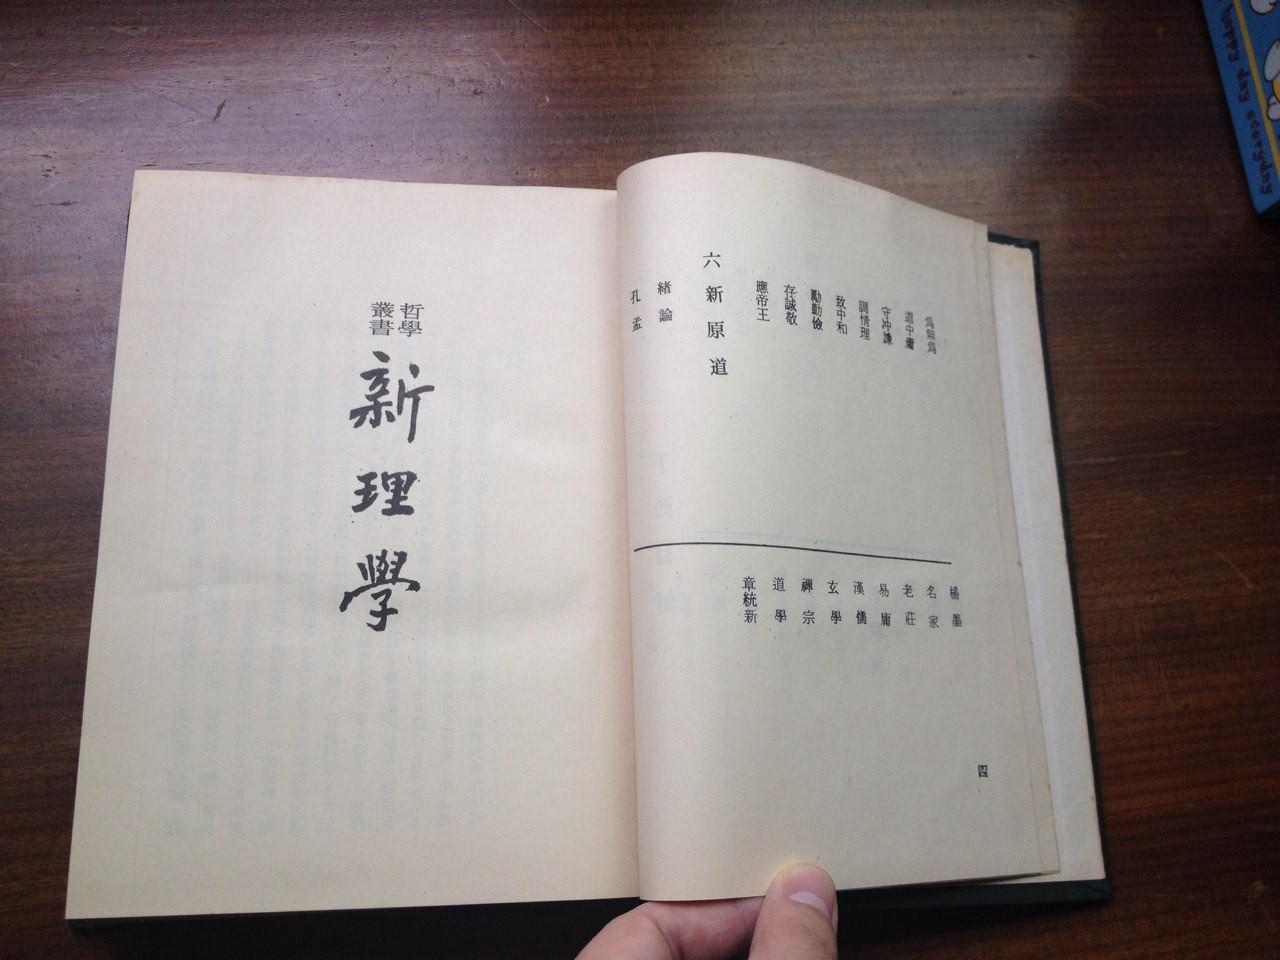 為無為
道中庸
守冲謙
調情理
致中和
勵勤儉
存誠敬
應帝王
六 新原道
緒論
孔孟
楊墨
名家
老莊
易庸
漢儒
玄學
禪宗
道學
章統新
四
哲學
叢書
新理學